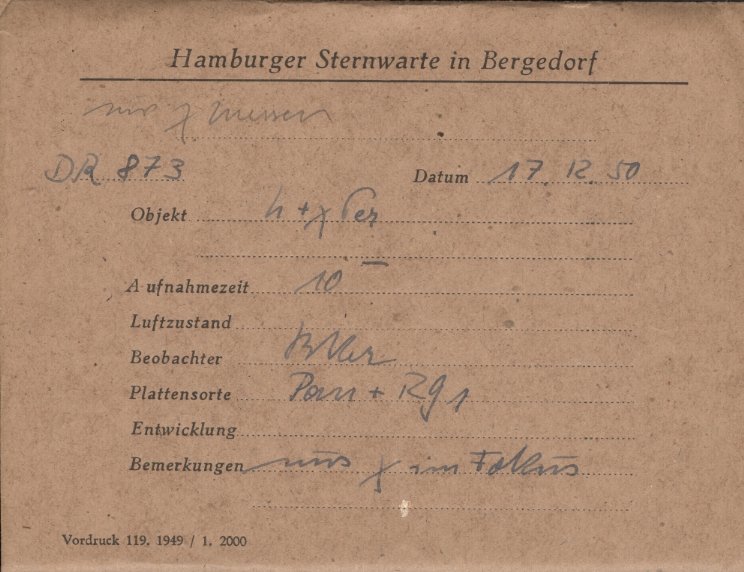 Hamburger Sternwarte in Bergedorf
nur χ messen
DR 873 Datum 17. 12. 50
Objekt h + χ Per
Aufnahmezeit 10
Luftzustand
Beobachter
Plattensorte Pan + Rg 1
Entwicklung
Bemerkungen nur χ im Fokus
Vordruck 119. 1949 / 1. 2000